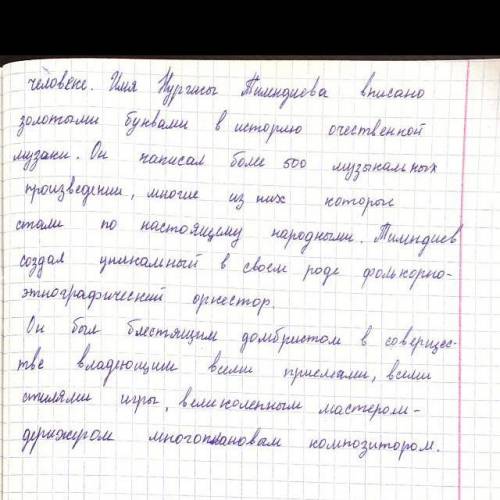 человеке. Имя Нургисы Тимндиева вписано
золотыми буквами в историю очественной
музаки. Он написал более 500 музыкальных
произведении, многие из них которые
стали по настоящему народными. Тимндиев
создал уникальный в своем роде фолькорно-
этнографический оркестор.
Он был блестящим домбристом в соверщес-
тве владеющим всеми приемами, всеми
стилями игры, великоленным мастером-
дерижером многоплановым композитором.